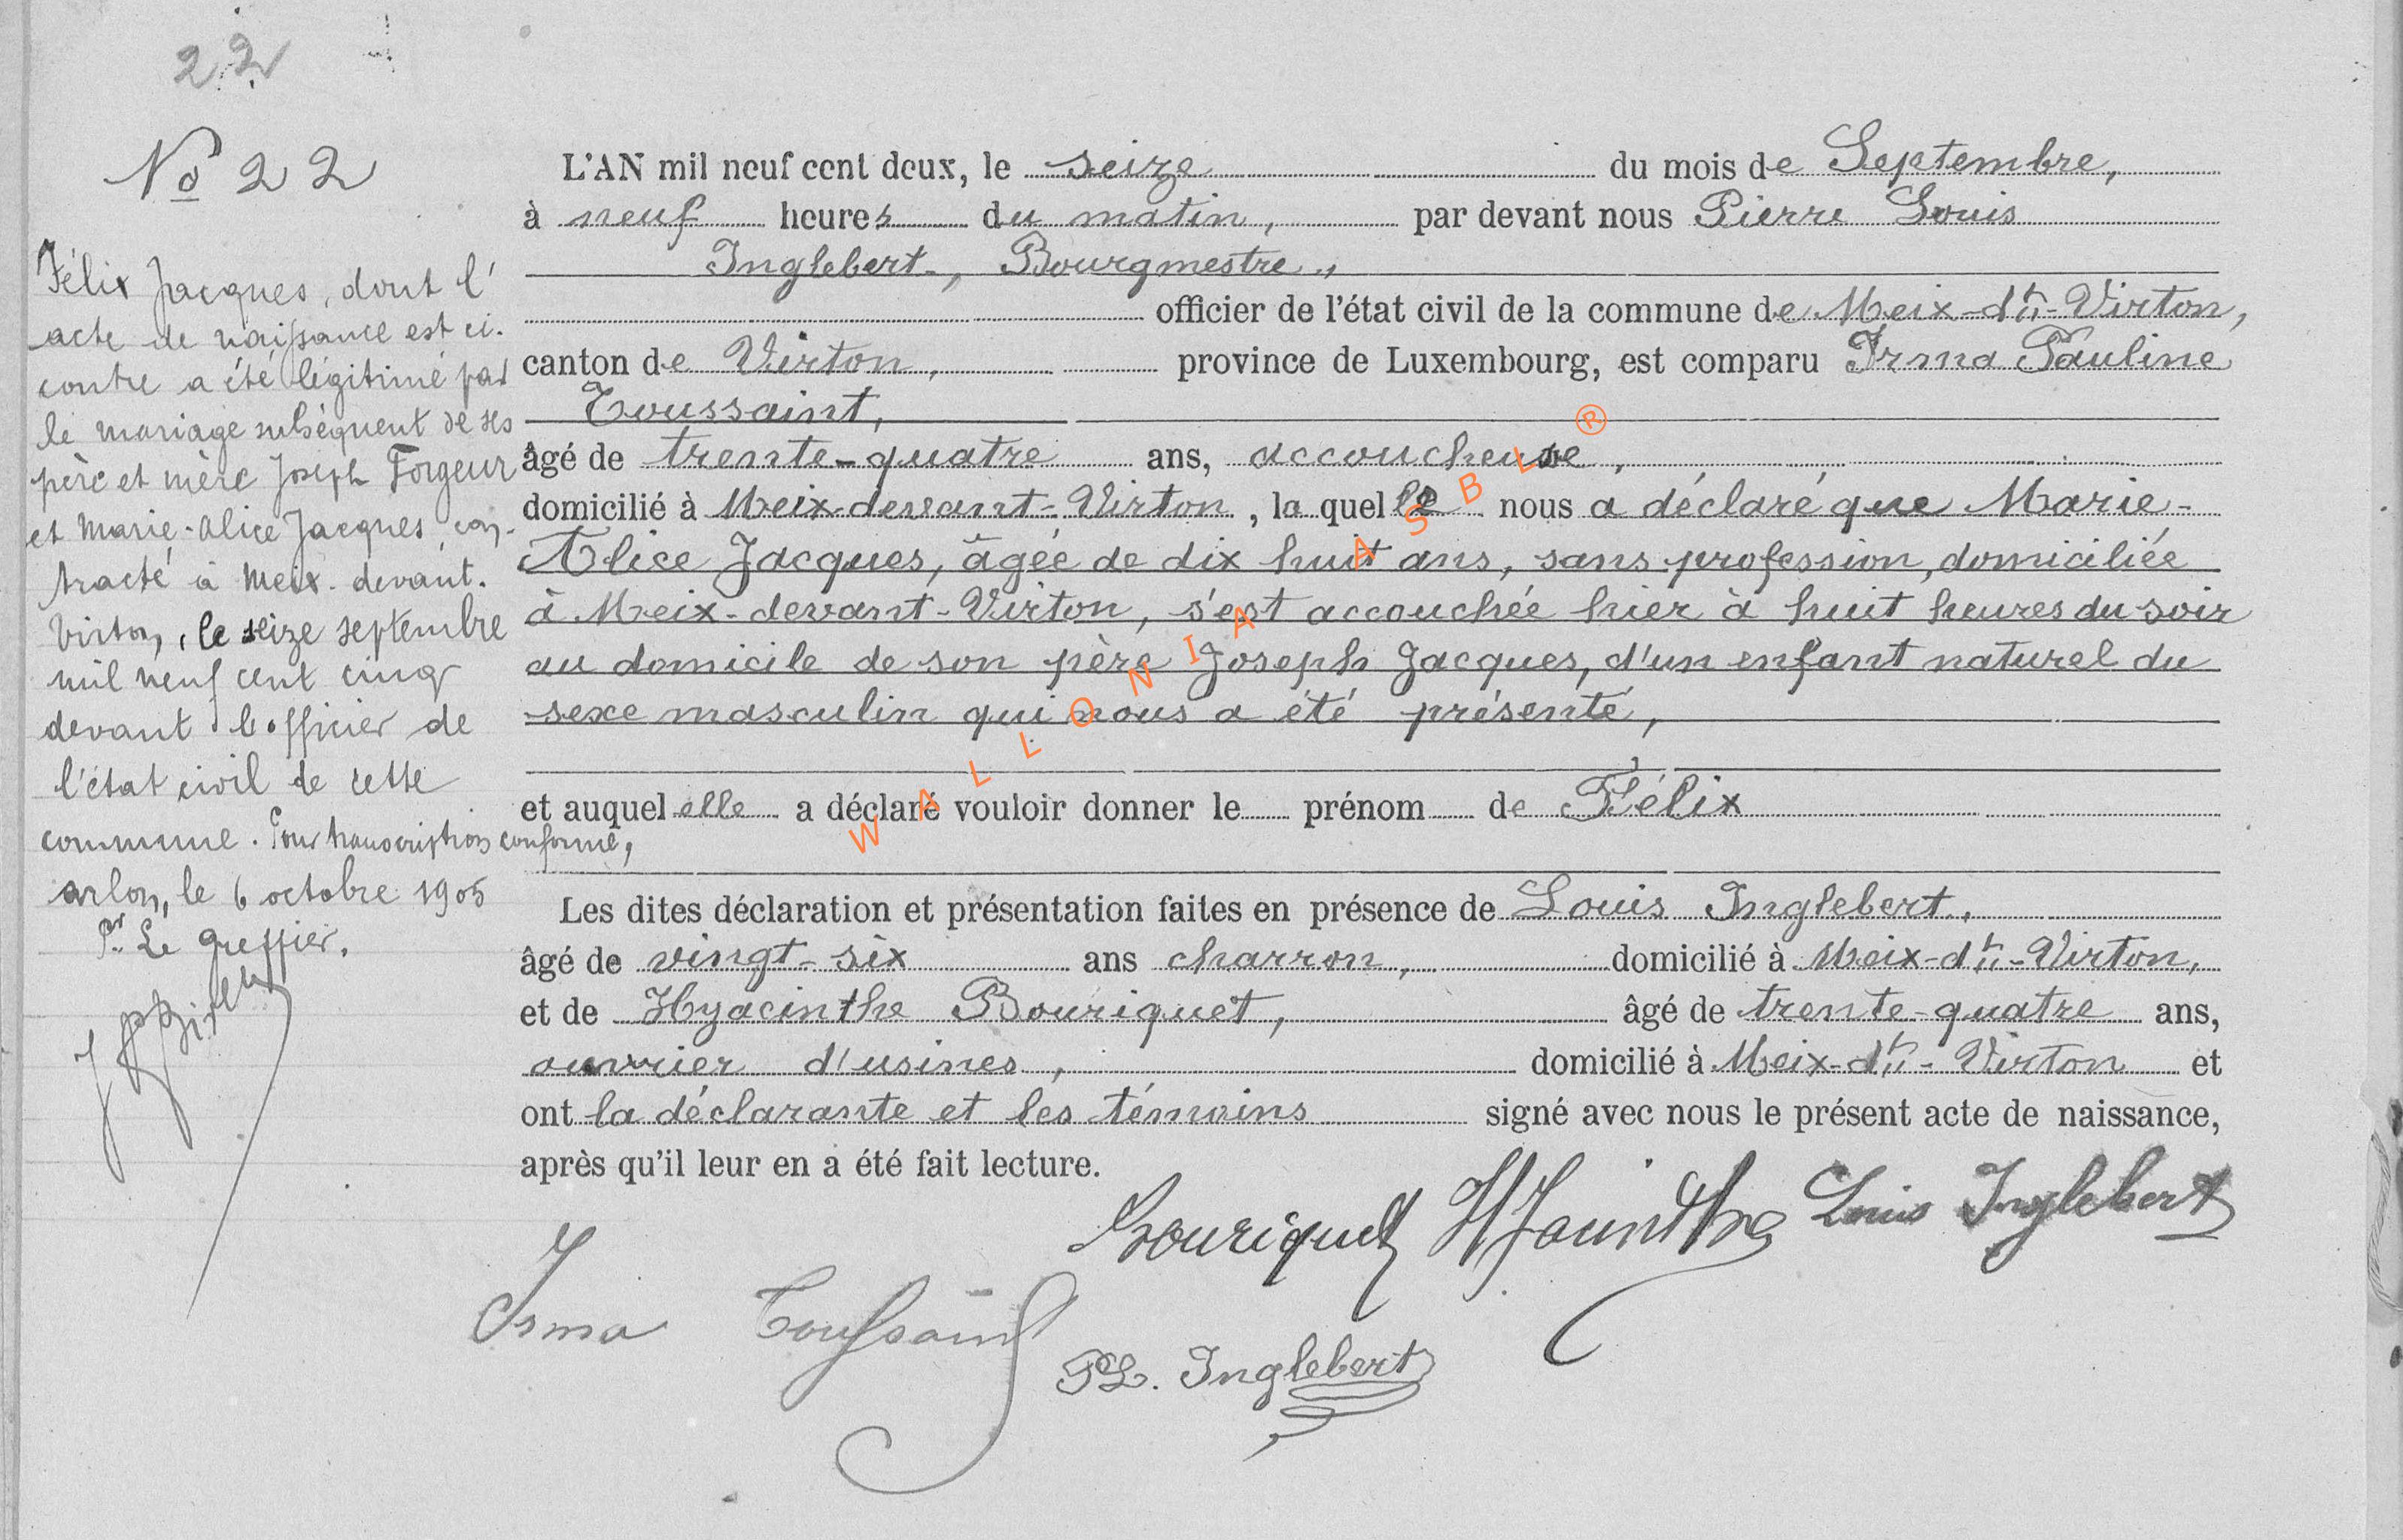 22
No 22
Félix Jacques, dont l'
acte de naissance est ci-
contre a été légitimé par
le mariage subséquent de ses
père et mère Joseph Forgeur
et Marie-Alice Jacques, con-
tracté à Meix-devant-
Virton, le seize septembre
mil neuf cent cinq
devant l'officier de
l'état civil de cette
commune. Pour transcription conforme,
Arlon, le 6 octobre 1905
Pr Le Greffier,
L'AN mil neuf cent deux, le seize du mois de Septembre,
à neuf heures du matin, par devant nous Pierre Louis
Inglebert, Bourgmestre,
officier de l'état civil de la commune de Meix-dt-Virton,
canton de Virton, province de Luxembourg, est comparu Irma Pauline
Toussaint,
âgé de trente-quatre ans, accoucheuse,
domicilié à Meix-devant-Virton, la quelle nous a déclaré que Marie-
Alice Jacques, âgée de dix huit ans, sans profession, domiciliée
à Meix-devant-Virton, s'est accouchée hier à huit heures du soir
au domicile de son père Joseph Jacques, d'un enfant naturel du
sexe masculin qui nous a été présenté,
et auquel elle a déclaré vouloir donner le prénom de Félix
Les dites déclaration et présentation faites en présence de Louis Inglebert,
âgé de vingt-six ans charron, domicilié à Meix-dt-Virton,
et de Hyacinthe Bouriquet, âgé de trente-quatre ans,
ouvrier d'usines, domicilié à Meix-dt-Virton et
ont la déclarante et les témoins signé avec nous le présent acte de naissance,
après qu'il leur en a été fait lecture.
Bouriquet Louis Inglebert
Irma Toussaint
PL. Inglebert
WALLONIA ASBL ®